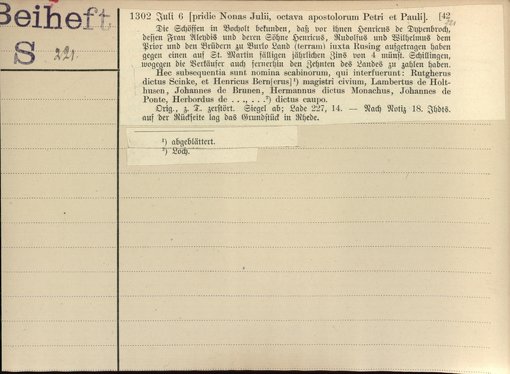 Beiheft
S 221.
1302 Juli 6 [pridie Nonas Julii, octava apostolorum Petri et Pauli]. [42
Die Schöffen in Bocholt bekunden, daß vor ihnen Henricus de Dypenbroch,
dessen Frau Aleydis und deren Söhne Henricus, Rudolfus und Wilhelmus dem
Prior und den Brüdern zu Burlo Land (terram) iuxta Rusing aufgetragen haben
gegen einen auf St. Martin fälligen jährlichen Zins von 4 münst. Schillingen,
wogegen die Verkäufer auch fernerhin den Zehnten des Landes zu zahlen haben.
Hec subsequentia sunt nomina scabinorum, qui interfuerunt: Rutgherus
dictus Scinke, et Henricus Bern[erus]¹) magistri civium, Lambertus de Holt-
husen, Johannes de Brunen, Hermannus dictus Monachus, Johannes de
Ponte, Herbordus de . . ., . . .²) dictus caupo.
Orig., z. T. zerstört. Siegel ab; Lade 227, 14. — Nach Notiz 18. Jhdts.
auf der Rückseite lag das Grundstück in Rhede.
¹) abgeblättert.
²) Loch.